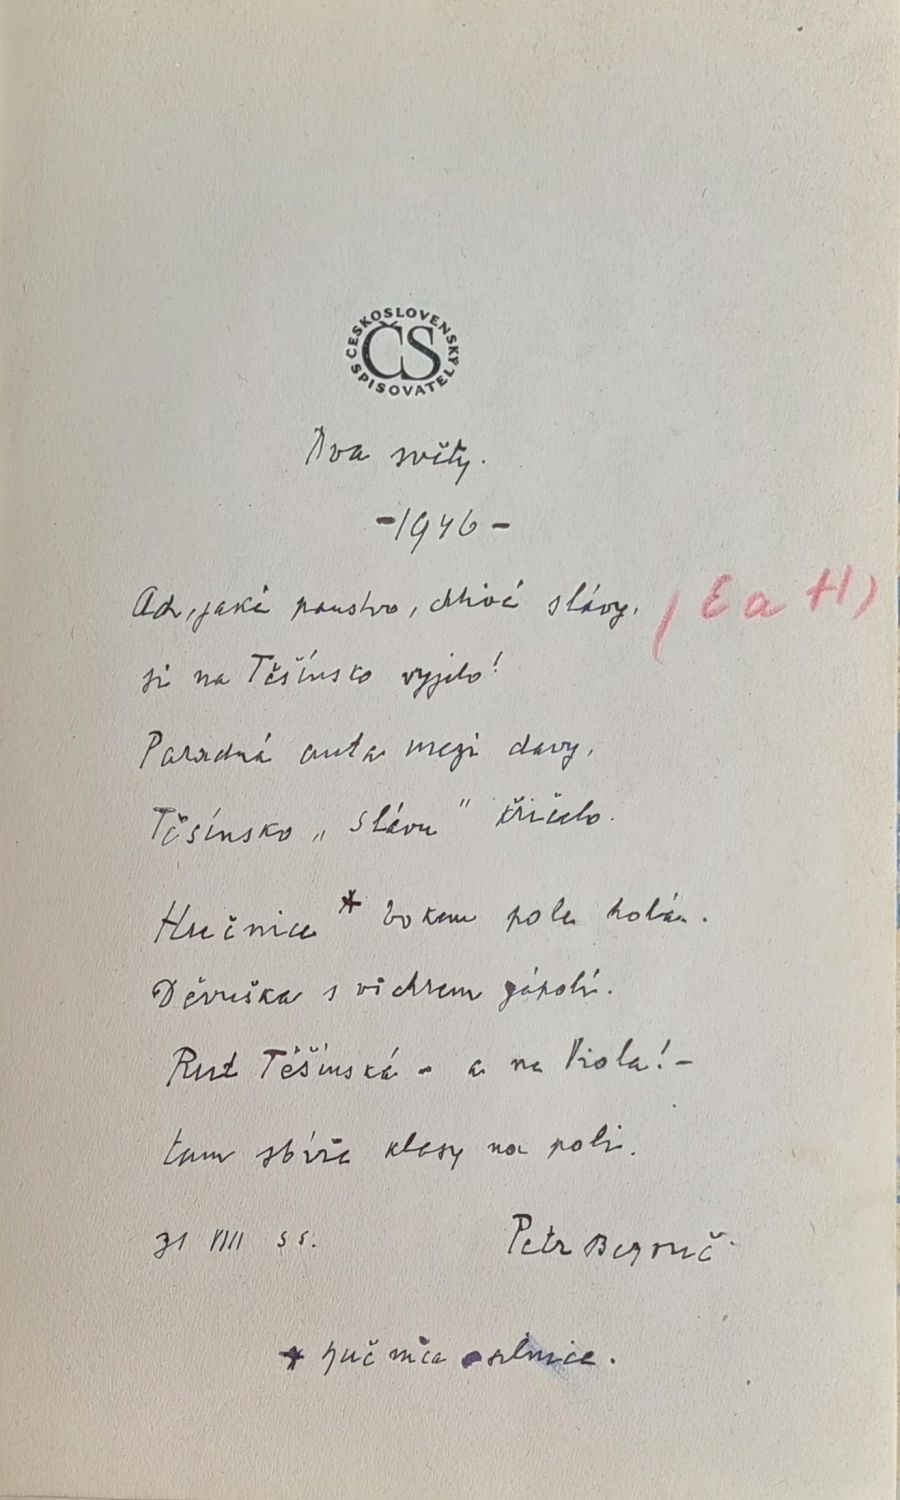 ČESKOSLOVENSKÝ SPISOVATEL
ČS
Dva světy.
- 1946 -
Ach, jaké panstvo, chtivé slávy, (E a H)
si na Těšínsko vyjelo!
Paradná auta mezi davy,
Těšínsko „Slávu" křičelo.
Hučnice * bokem pole holá.
Děvuška s vichrem zápolí.
Rut Těšínská - a na Viola! -
tam sbírá klasy na poli.
31 VIII 55.
Petr Bezruč.
* hučnica silnice.